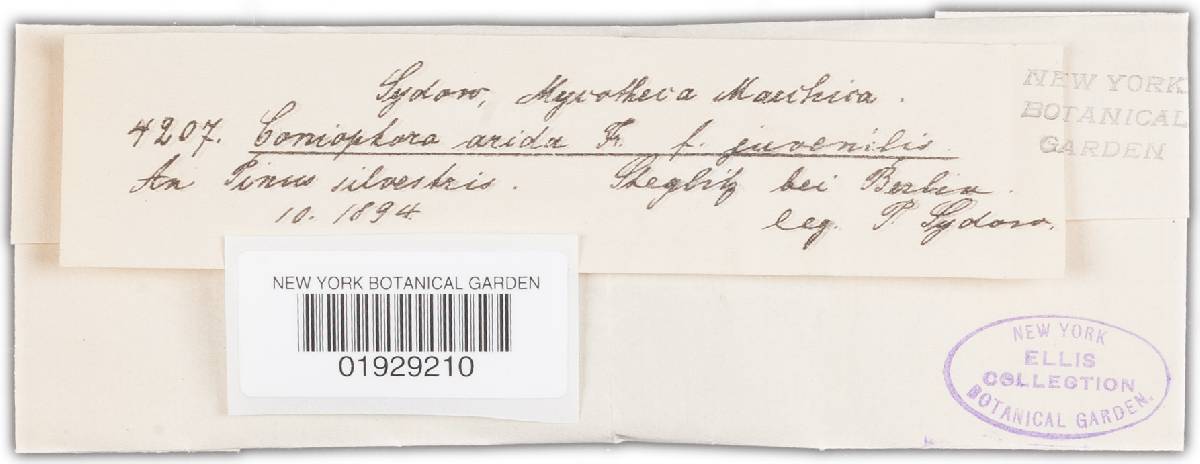 Sydow, Mycotheca Marchica.
4207. Coniophora arida Fr. f. juvenilis.
An Pinus silvestris. Steglitz bei Berlin.
10. 1894 leg. P. Sydow.
NEW YORK
BOTANICAL
GARDEN
NEW YORK BOTANICAL GARDEN
01929210
NEW YORK
ELLIS
COLLECTION
BOTANICAL GARDEN.